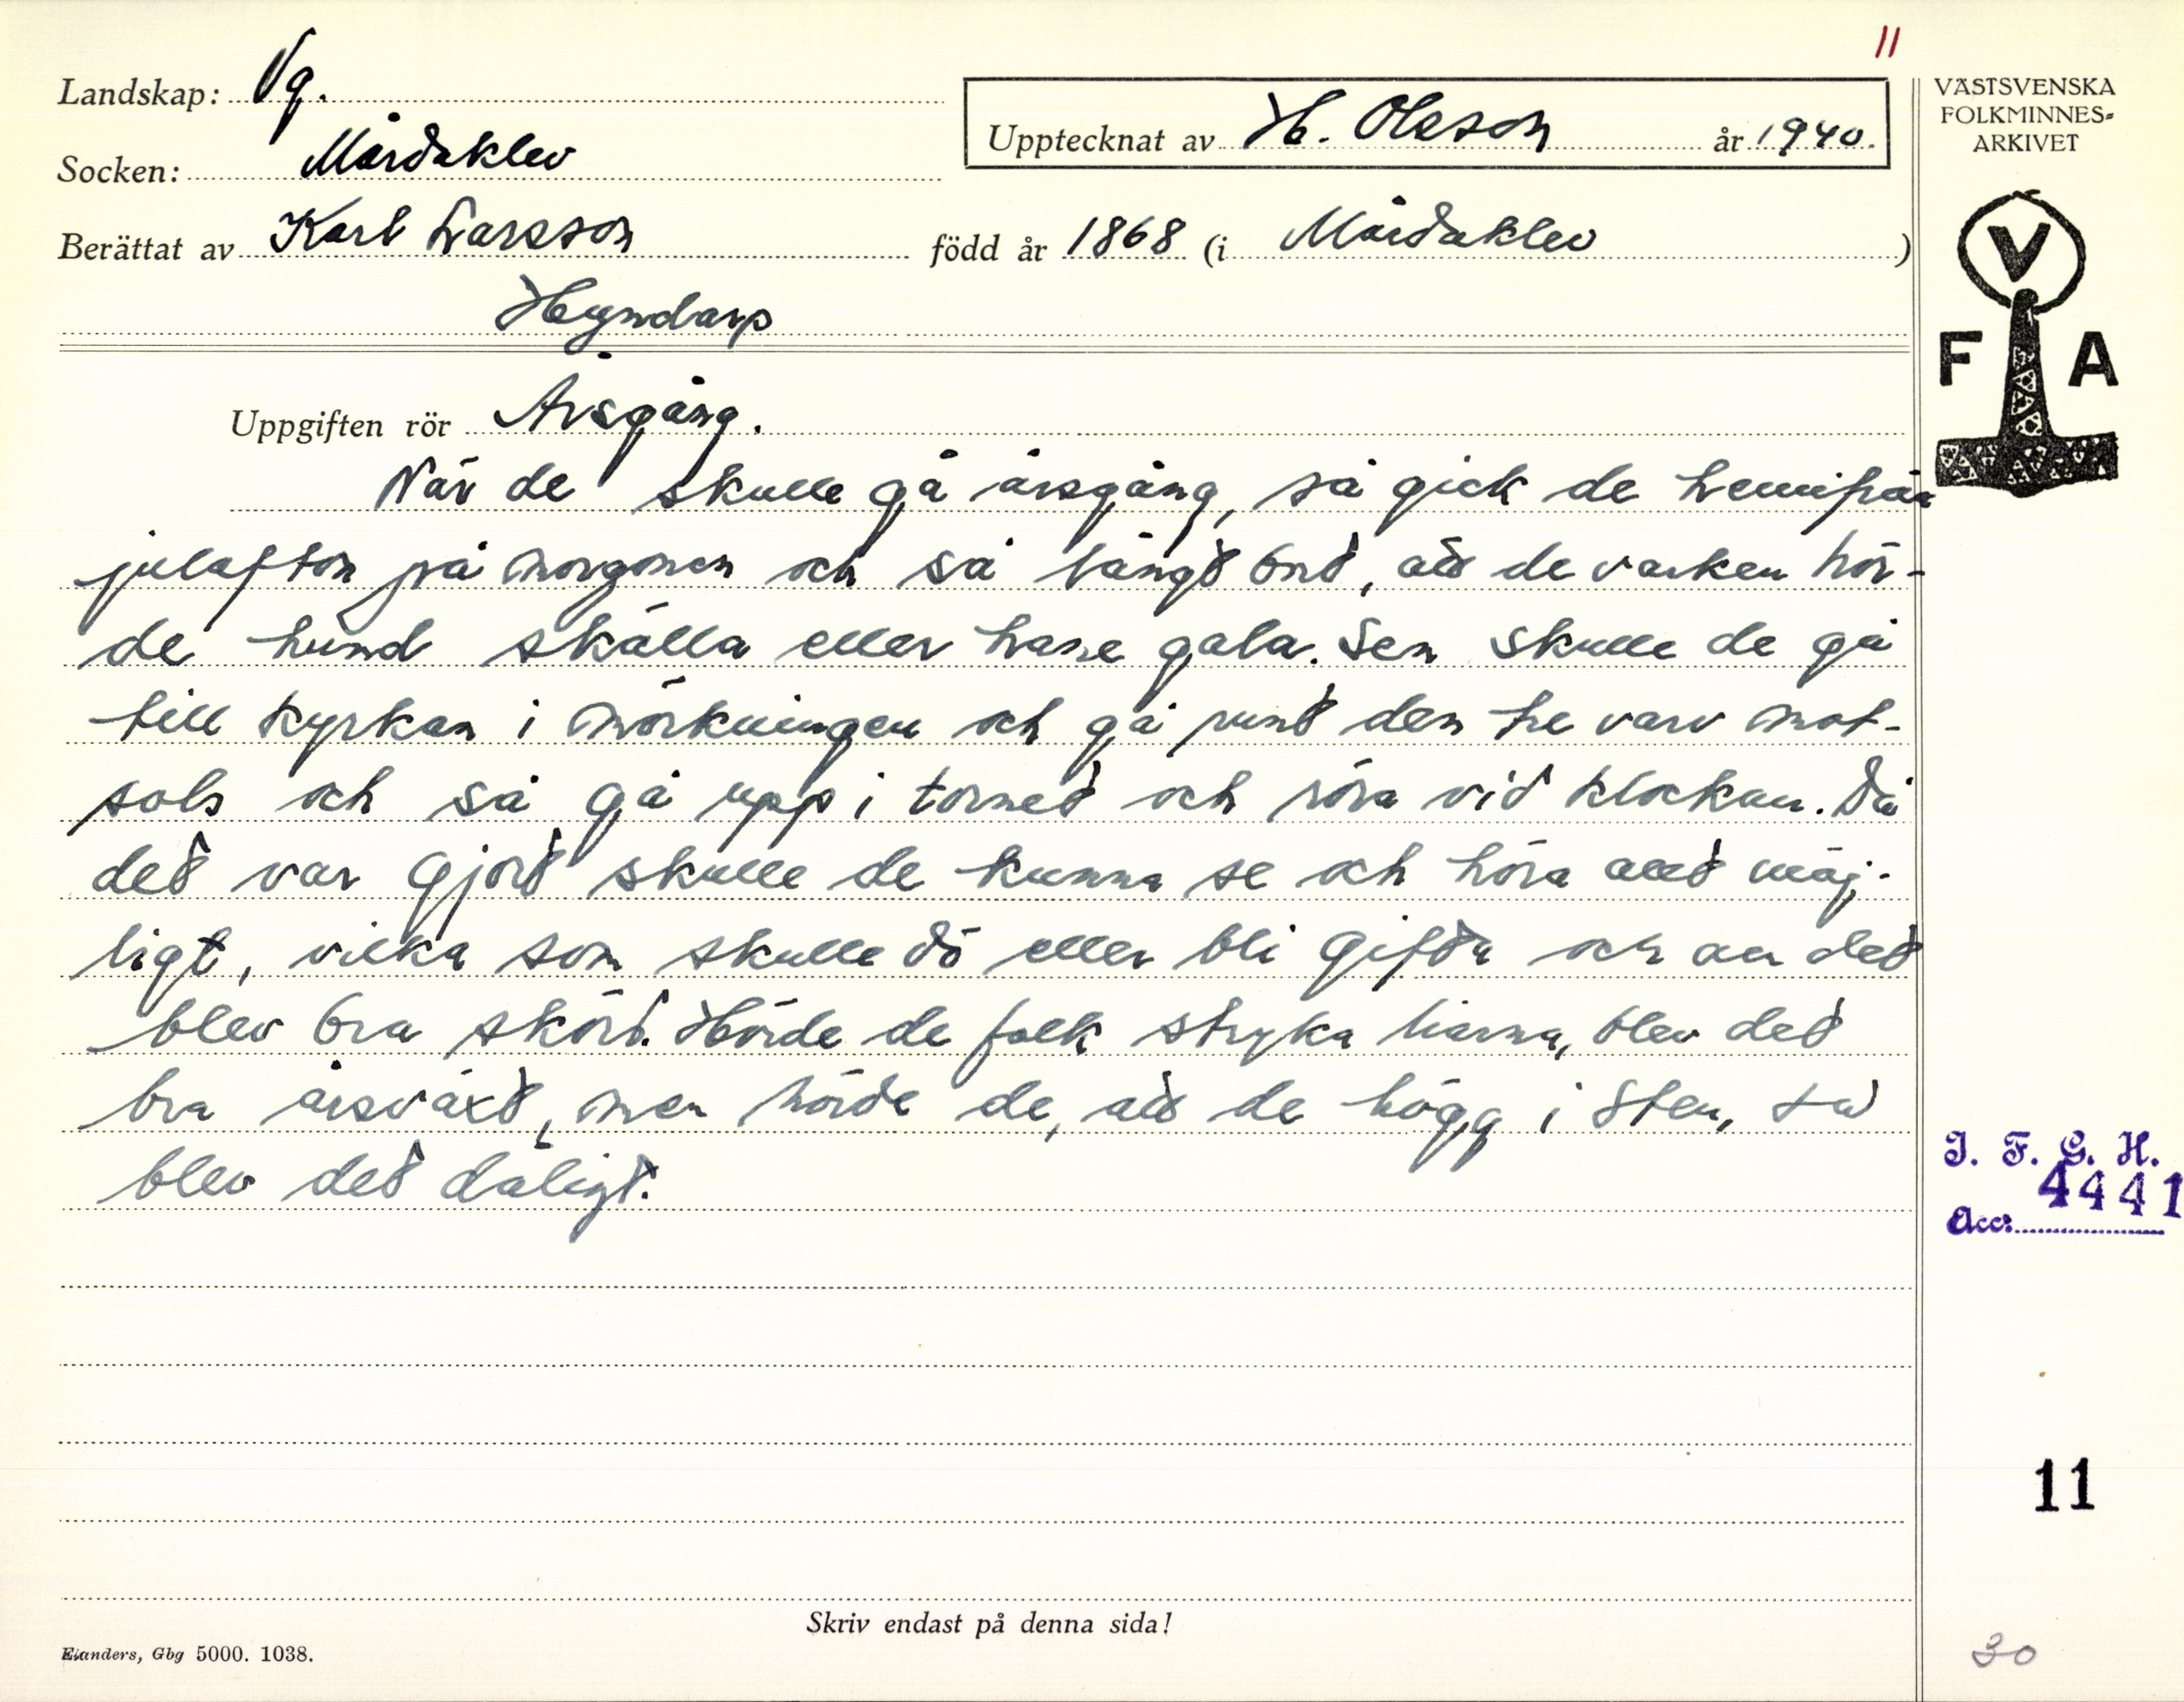 11
Landskap: Vg.
Socken: Mårdaklev
Upptecknat av H. Olsson år 1940.
VÄSTSVENSKA
FOLKMINNES-
ARKIVET
Berättat av Karl Larsson född år 1868 (i Mårdaklev)
Hyndarp
V
F A
Uppgiften rör Årsgång.
När de skulle gå årsgång, så gick de hemifrån
julafton på morgonen och så långt bort, att de varken hör-
de hund skälla eller hane gala. Sen skulle de gå
till kyrkan i mörkningen och gå runt den tre varv mot-
sols och så gå upp i tornet och röra vid klockan. Då
det var gjort skulle de kunna se och höra allt möj-
ligt, vilka som skulle dö eller bli gifta och om det
blev bra skörd. Hörde de folk stryka liarna, blev det
bra årsväxt, men hörde de, att de högg i sten, så
blev det dåligt.
I. F. G. H.
4441
Acc:
11
Skriv endast på denna sida!
Elanders, Gbg 5000. 1038.
30